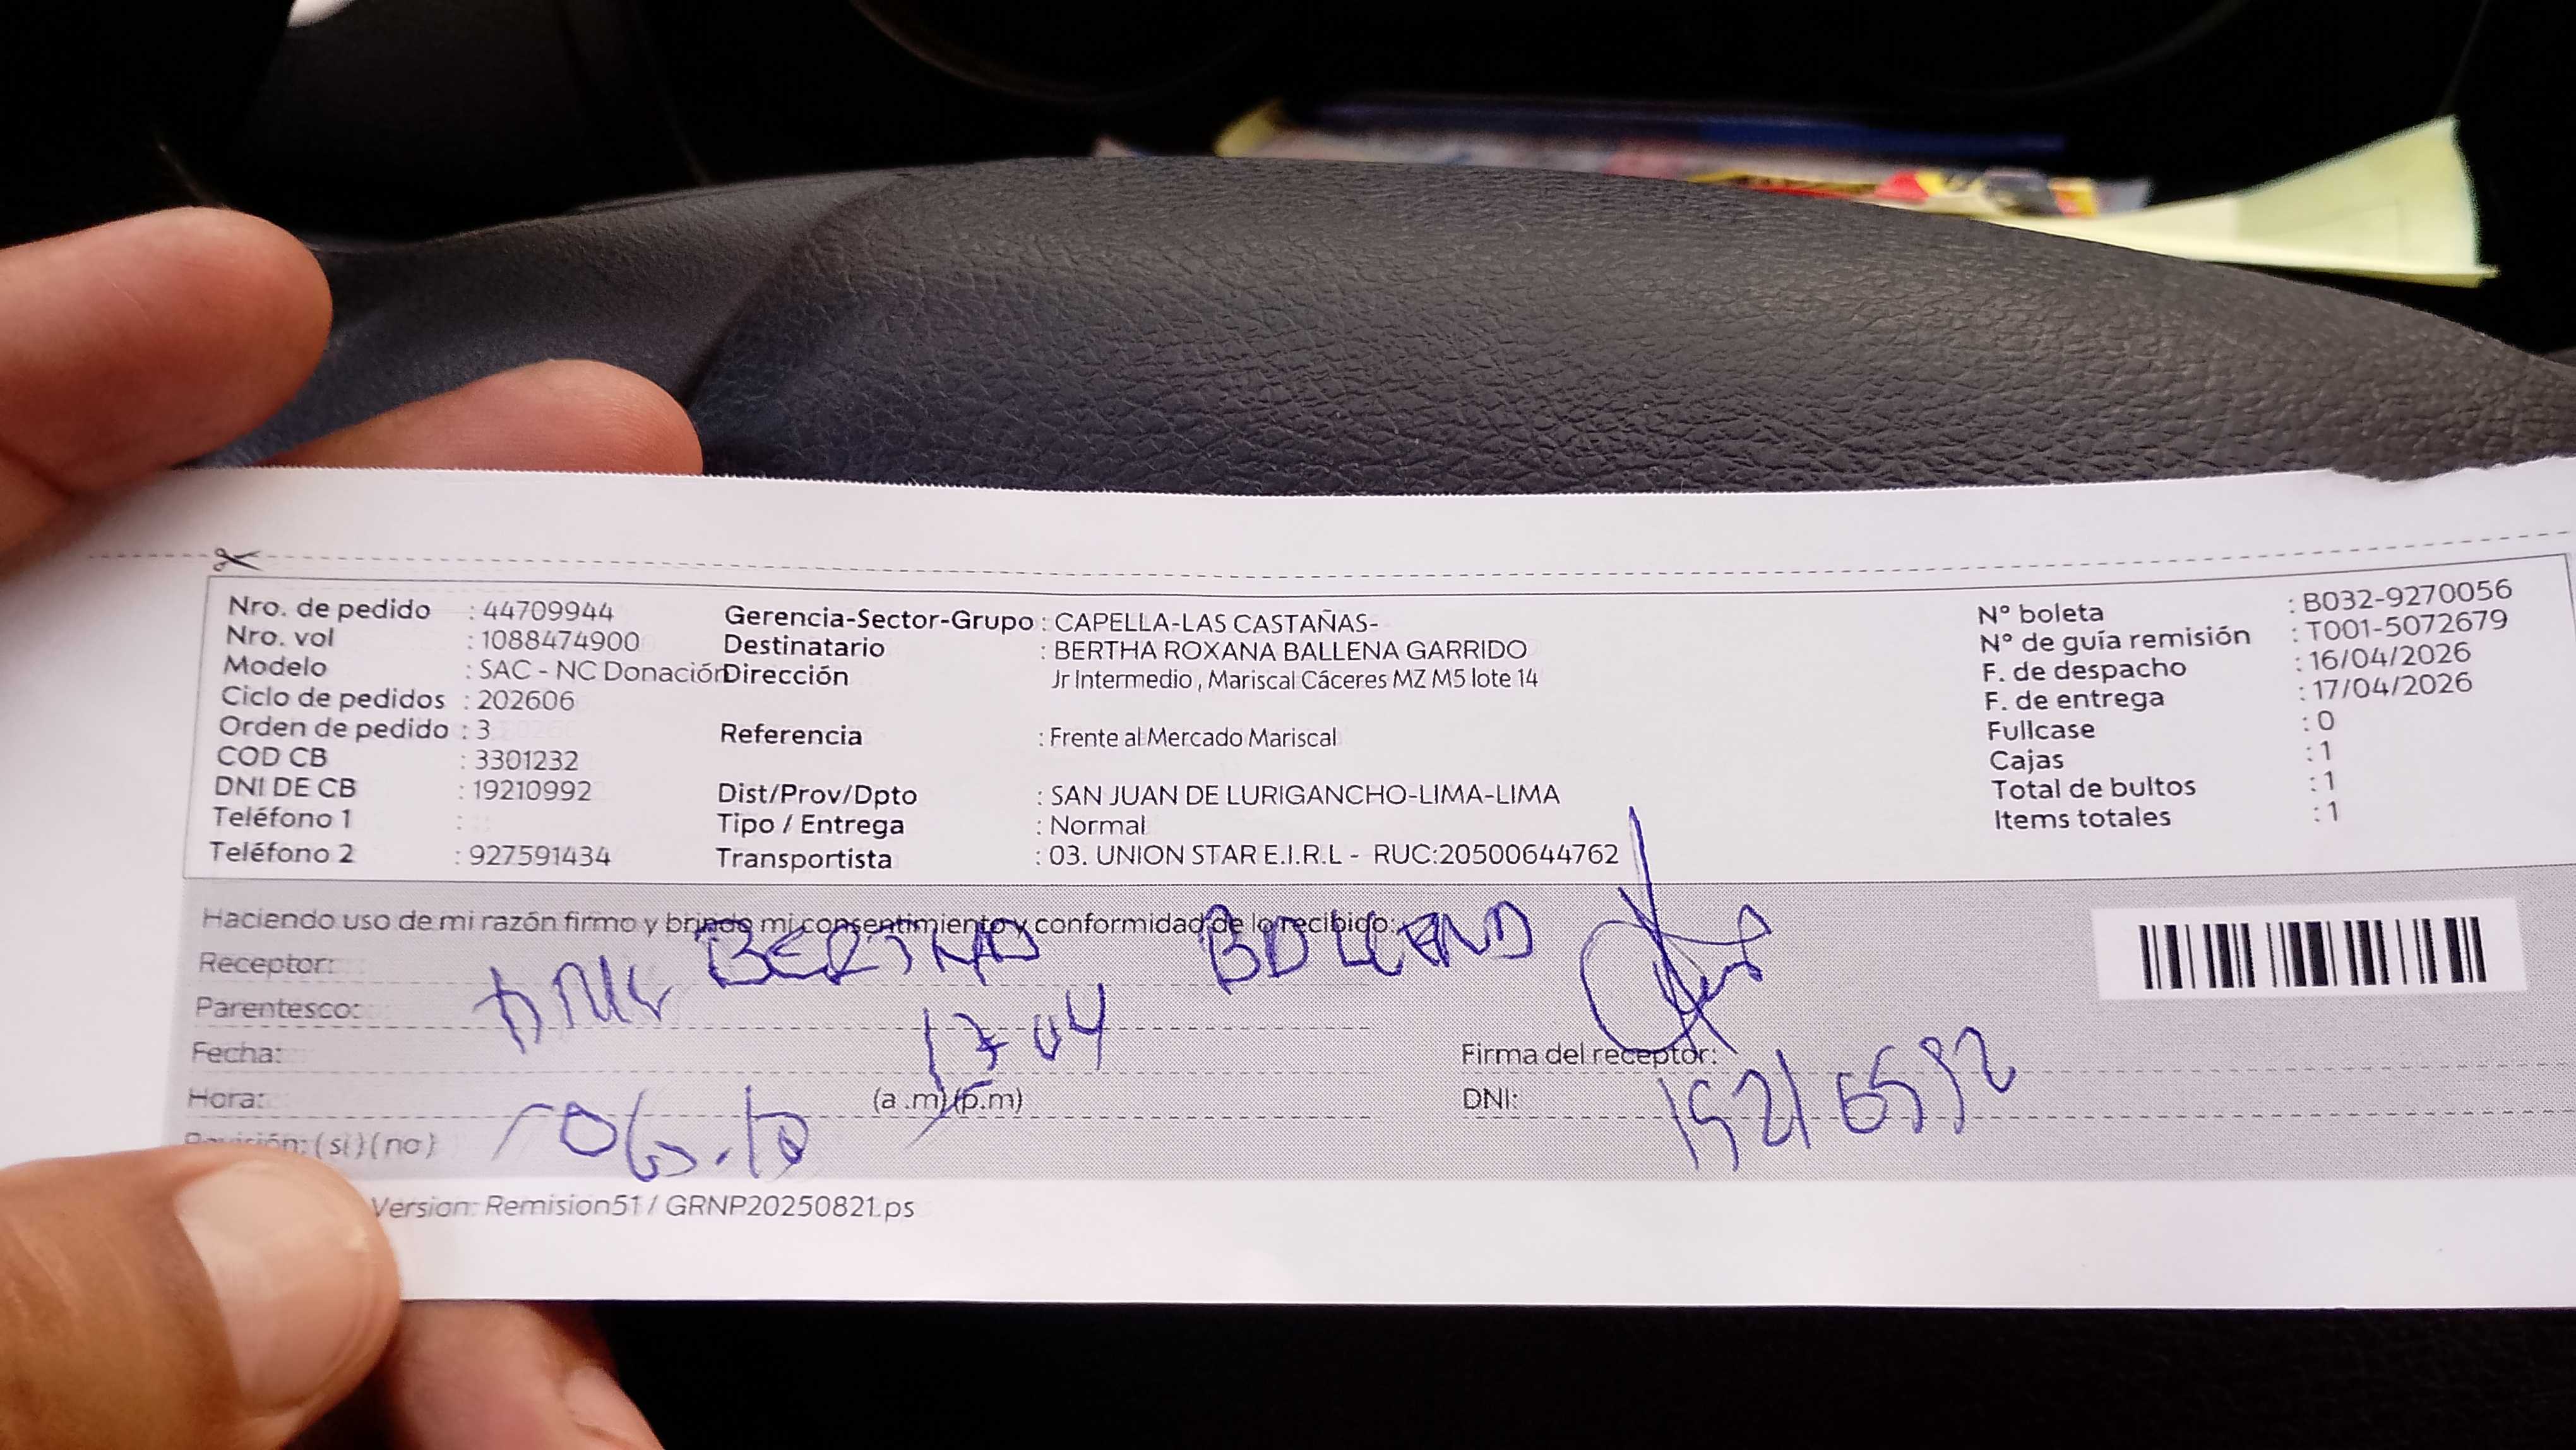 Nro. de pedido : 44709944
Nro. vol : 1088474900
Modelo : SAC - NC Donación
Ciclo de pedidos : 202606
Orden de pedido : 3
COD CB : 3301232
DNI DE CB : 19210992
Teléfono 1 :
Teléfono 2 : 927591434
Gerencia-Sector-Grupo : CAPELLA-LAS CASTAÑAS-
Destinatario : BERTHA ROXANA BALLENA GARRIDO
Dirección Jr Intermedio , Mariscal Cáceres MZ M5 lote 14
Referencia : Frente al Mercado Mariscal
Dist/Prov/Dpto : SAN JUAN DE LURIGANCHO-LIMA-LIMA
Tipo / Entrega : Normal
Transportista : 03. UNION STAR E.I.R.L - RUC:20500644762
N° boleta : B032-9270056
N° de guía remisión : T001-5072679
F. de despacho : 16/04/2026
F. de entrega : 17/04/2026
Fullcase : 0
Cajas : 1
Total de bultos : 1
Items totales : 1
Haciendo uso de mi razón firmo y brindo mi consentimiento y conformidad de lo recibido:
Receptor:
Parentesco:
Fecha: 17 04
Firma del receptor:
Hora: (a .m) (p.m)
DNI:
(si) (no)
Version: Remision51 / GRNP20250821.ps